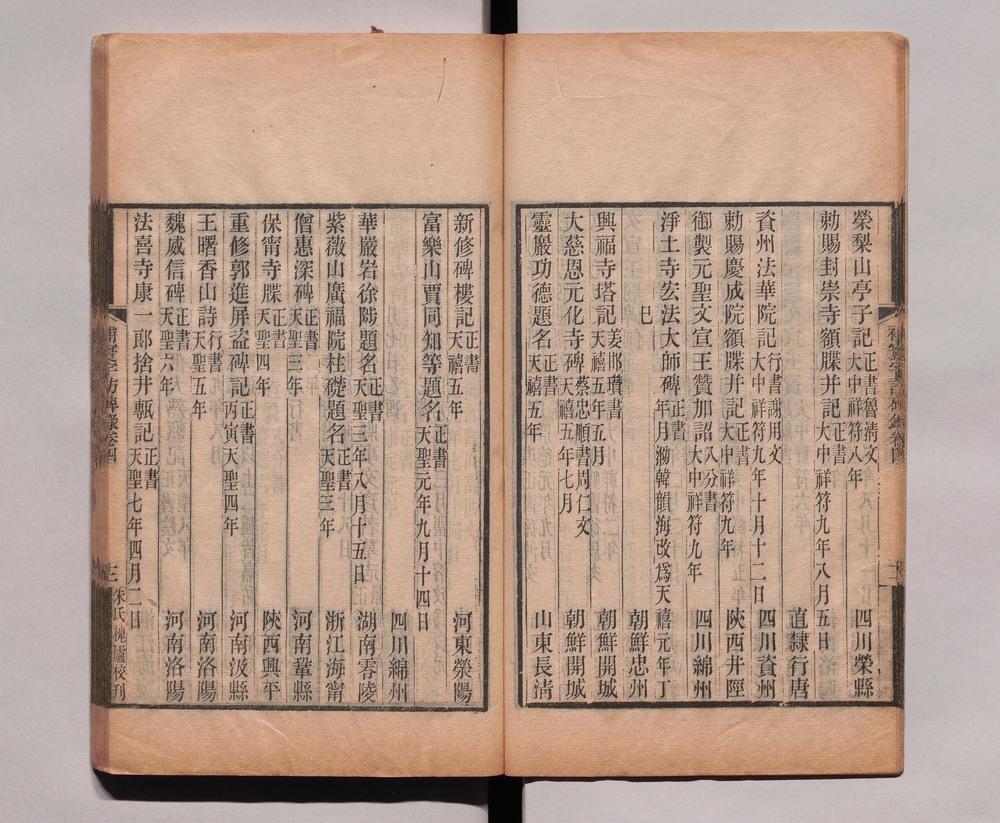 榮棃山亭子記 正書魯淸文 大中祥符八年 四川榮縣
勅賜封崇寺額牒并記 正書 大中祥符九年八月五日 直隸行唐
資州法華院記 行書謝用文 大中祥符九年十月十二日 四川資州
勅賜慶成院額牒并記 正書 大中祥符九年 陝西井陘
御製元聖文宣王贊加詔 八分書 大中祥符九年 四川綿州
淨土寺宏法大師碑 正書 年月泐韓韻海改爲天禧元年丁
巳 朝鮮忠州
興福寺塔記 姜邯瓚書 天禧五年五月 朝鮮開城
大慈恩元化寺碑 蔡忠順書周仁文 天禧五年七月 朝鮮開城
靈巖功德題名 正書 天禧五年 山東長淸
新修碑樓記 正書 天禧五年 河東滎陽
富樂山賈同知等題名 正書 天聖元年九月十四日
四川綿州
華嚴岩徐陟題名 正書 天聖三年八月十五日 湖南零陵
紫薇山廣福院柱礎題名 正書 天聖三年 浙江海甯
僧惠深碑 正書 天聖三年 河南鞏縣
保甯寺牒 正書 天聖四年 陝西興平
重修郭進屏盜碑記 正書 丙寅天聖四年 河南汲縣
王曙香山詩 行書 天聖五年 河南洛陽
魏威信碑 正書 天聖六年 河南洛陽
法喜寺康一郎捨井甎記 正書 天聖七年四月二日
補寰宇訪碑錄卷四
三 朱氏槐廬校刊